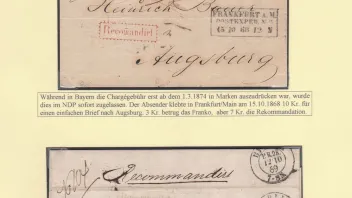 Heinrich
Recomandirt
FRANKFURT A.M.
15 10 68
Augsburg
Während in Bayern die Chargégebühr erst ab dem 1.3.1874 in Marken auszudrücken war, wurde
dies im NDP sofort zugelassen. Der Absender klebte in Frankfurt/Main am 15.10.1868 10 Kr. für
einen einfachen Brief nach Augsburg. 3 Kr. betrug das Franko, aber 7 Kr. die Rekommandation.
Recommandirt
12 10